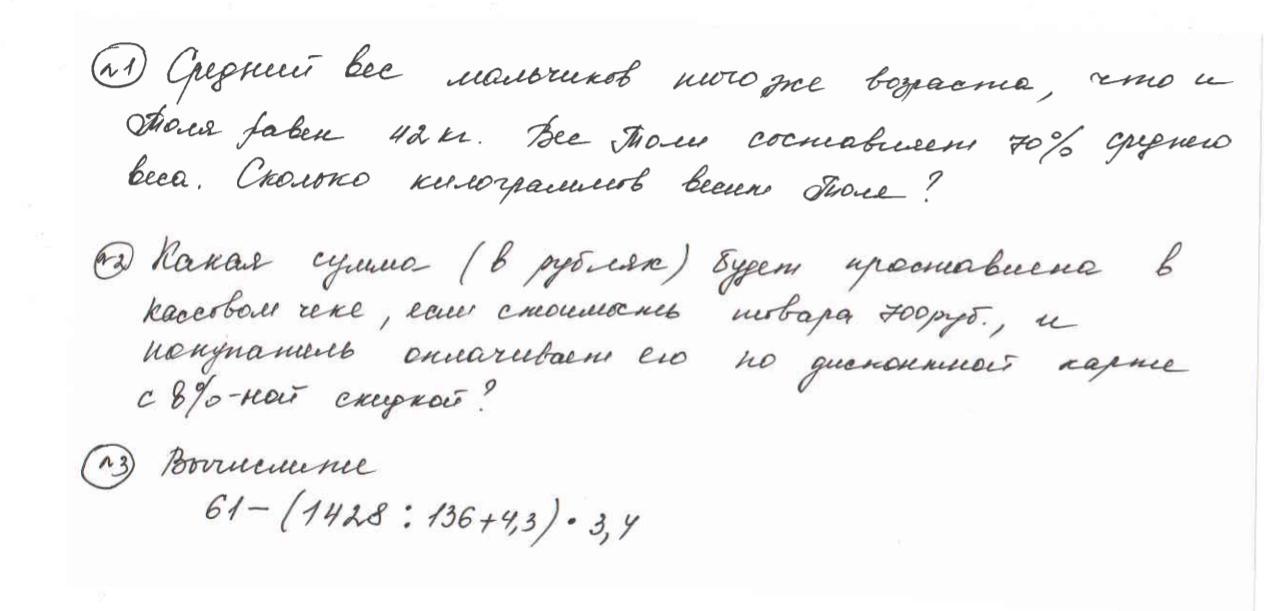 №1 Средний вес мальчиков того же возраста, что и
Толя равен 42 кг. Вес Толи составляет 70% среднего
веса. Сколько килограммов весит Толя?
№2 Какая сумма (в рублях) будет проставлена в
кассовом чеке, если стоимость товара 700 руб., и
покупатель оплачивает его по дисконтной карте
с 8%-ной скидкой?
№3 Вычислите
61-(1428:136+4,3)·3,4